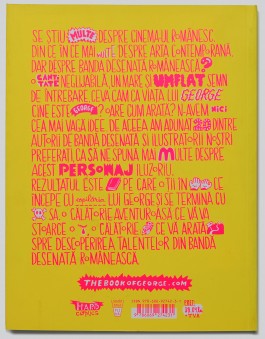 SE ȘTIU MULTE DESPRE CINEMAUL ROMÂNESC,
DIN CE ÎN CE MAI MULTE DESPRE ARTA CONTEMPORANĂ,
DAR DESPRE BANDA DESENATĂ ROMÂNEASCĂ?
O CANTITATE NEGLIJABILĂ, UN MARE ȘI UMFLAT SEMN
DE ÎNTREBARE. CEVA CAM CA VIAȚA LUI GEORGE
CINE ESTE GEORGE? OARE CUM ARATĂ? N-AVEM NICI
CEA MAI VAGĂ IDEE. DE ACEEA AM ADUNAT DINTRE
AUTORII DE BANDĂ DESENATĂ ȘI ILUSTRATORII NOȘTRI
PREFERAȚI, CA SĂ NE SPUNĂ MAI MULTE DESPRE
ACEST PERSONAJ ILUZORIU.
REZULTATUL ESTE PE CARE O ȚII ÎN CE
ÎNCEPE CU copilăria LUI GEORGE ȘI SE TERMINĂ CU
SA. O CĂLĂTORIE AVENTUROASĂ CE VĂ VA
STOARCE O CĂLĂTORIE CE VĂ ARATĂ
SPRE DESCOPERIREA TALENTELOR DIN BANDA
DESENATĂ ROMÂNEASCĂ.
THEBOOKOFGEORGE.COM
HARD
COMICS